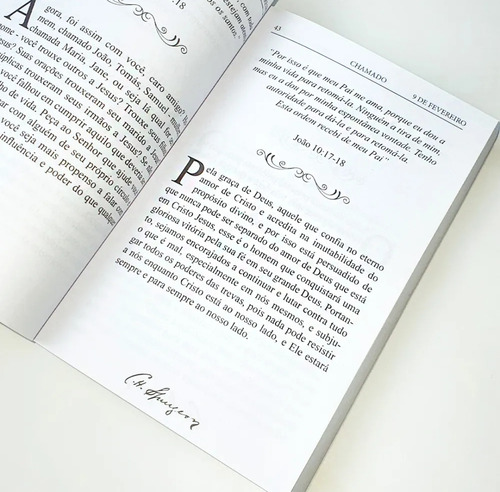 estejam
os santos."
:18
Agora, foi assim com você, caro amigo?
mem, chamado João, Tomás, Samuel,
chamada Maria, Jane, ou seja lá qual for
nome - você trouxe outros a Jesus? Trouxe seus
Jesus? Suas orações trouxeram seu marido a Jesus?
úplicas trouxeram seus irmãos a Jesus? Se
falhou em cumprir aquilo que deve
de vida. Peça ao Senhor que ajude
çar com alguém de seu próprio círculo
você seja mais propenso a falar com
nfluência e poder do que qualquer
43
CHAMADO
9 DE FEVEREIRO
"Por isso é que meu Pai me ama, porque eu dou a
minha vida para retomá-la. Ninguém a tira de mim,
mas eu a dou por minha espontânea vontade. Tenho
autoridade para dá-la e para retomá-la.
Esta ordem recebi de meu Pai"
João 10:17-18
Pela graça de Deus, aquele que confia no eterno
amor de Cristo e acredita na imutabilidade do
propósito divino, e por isso está persuadido de
que nunca pode ser separado do amor de Deus que está
em Cristo Jesus, esse é o homem que conquistará uma
gloriosa vitória pela sua fé em seu grande Deus. Portan-
to, sejamos encorajados a continuar e lutar contra tudo
o que é mal, especialmente em nós mesmos, e subju-
gar todos os poderes das trevas, pois nada pode resistir
a nós enquanto Cristo está ao nosso lado, e Ele estará
sempre e para sempre ao nosso lado.
C. H. Spurgeon